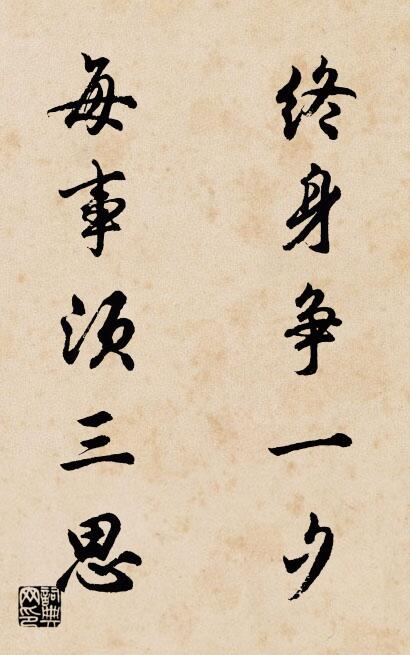 终身争一夕
每事须三思
詞典网印